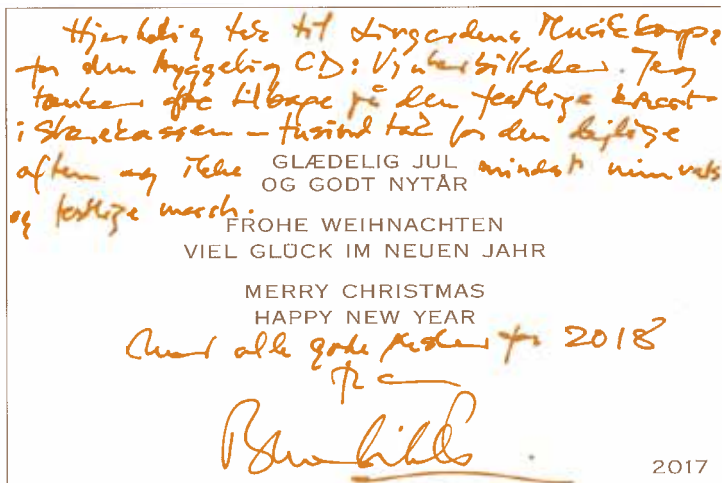 Hjertelig tak til Livgardens Musikkorps
for den hyggelig CD: Vinterbilleder. Jeg
tænker ofte tilbage på den festlige koncert
i Stærekassen – tusind tak for den dejlige
aften og ikke mindst min vals
og festlige march.
GLÆDELIG JUL
OG GODT NYTÅR
FROHE WEIHNACHTEN
VIEL GLÜCK IM NEUEN JAHR
MERRY CHRISTMAS
HAPPY NEW YEAR
Med alle gode ønsker for 2018
fra
2017